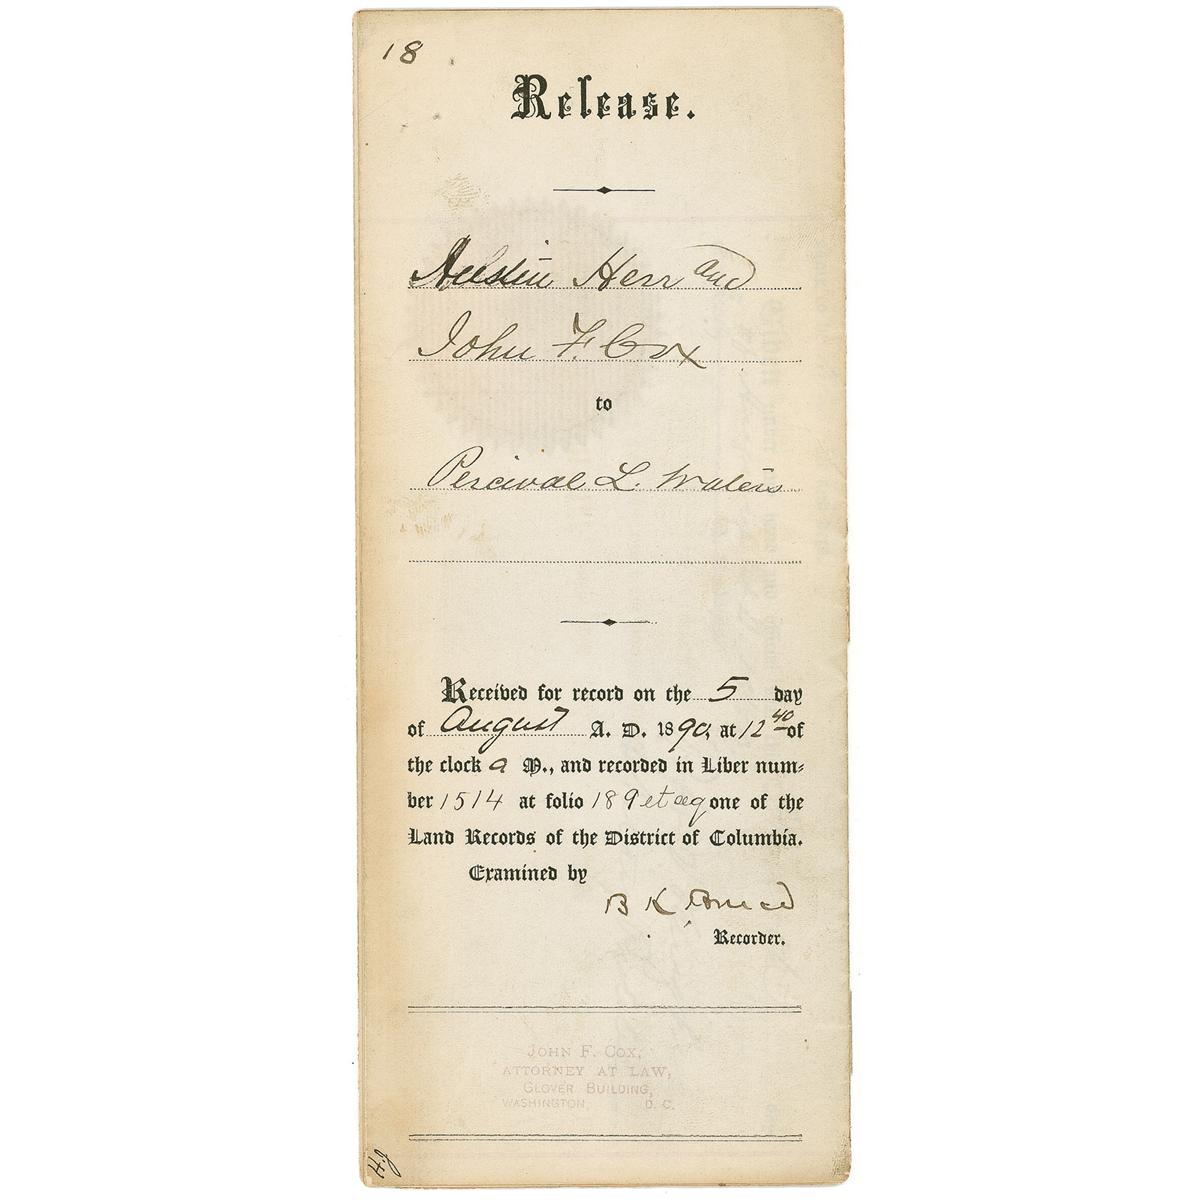 18
Release.
Austin Herr and
John F. Cox
to
Percival L. Waters
Received for record on the 5 day
of August A. D. 1890, at 12 40 of
the clock a M., and recorded in Liber num-
ber 1514 at folio 189 et seq one of the
Land Records of the District of Columbia.
Examined by
B K Bruce
Recorder.
JOHN F. COX,
ATTORNEY AT LAW,
GLOVER BUILDING,
WASHINGTON, D. C.